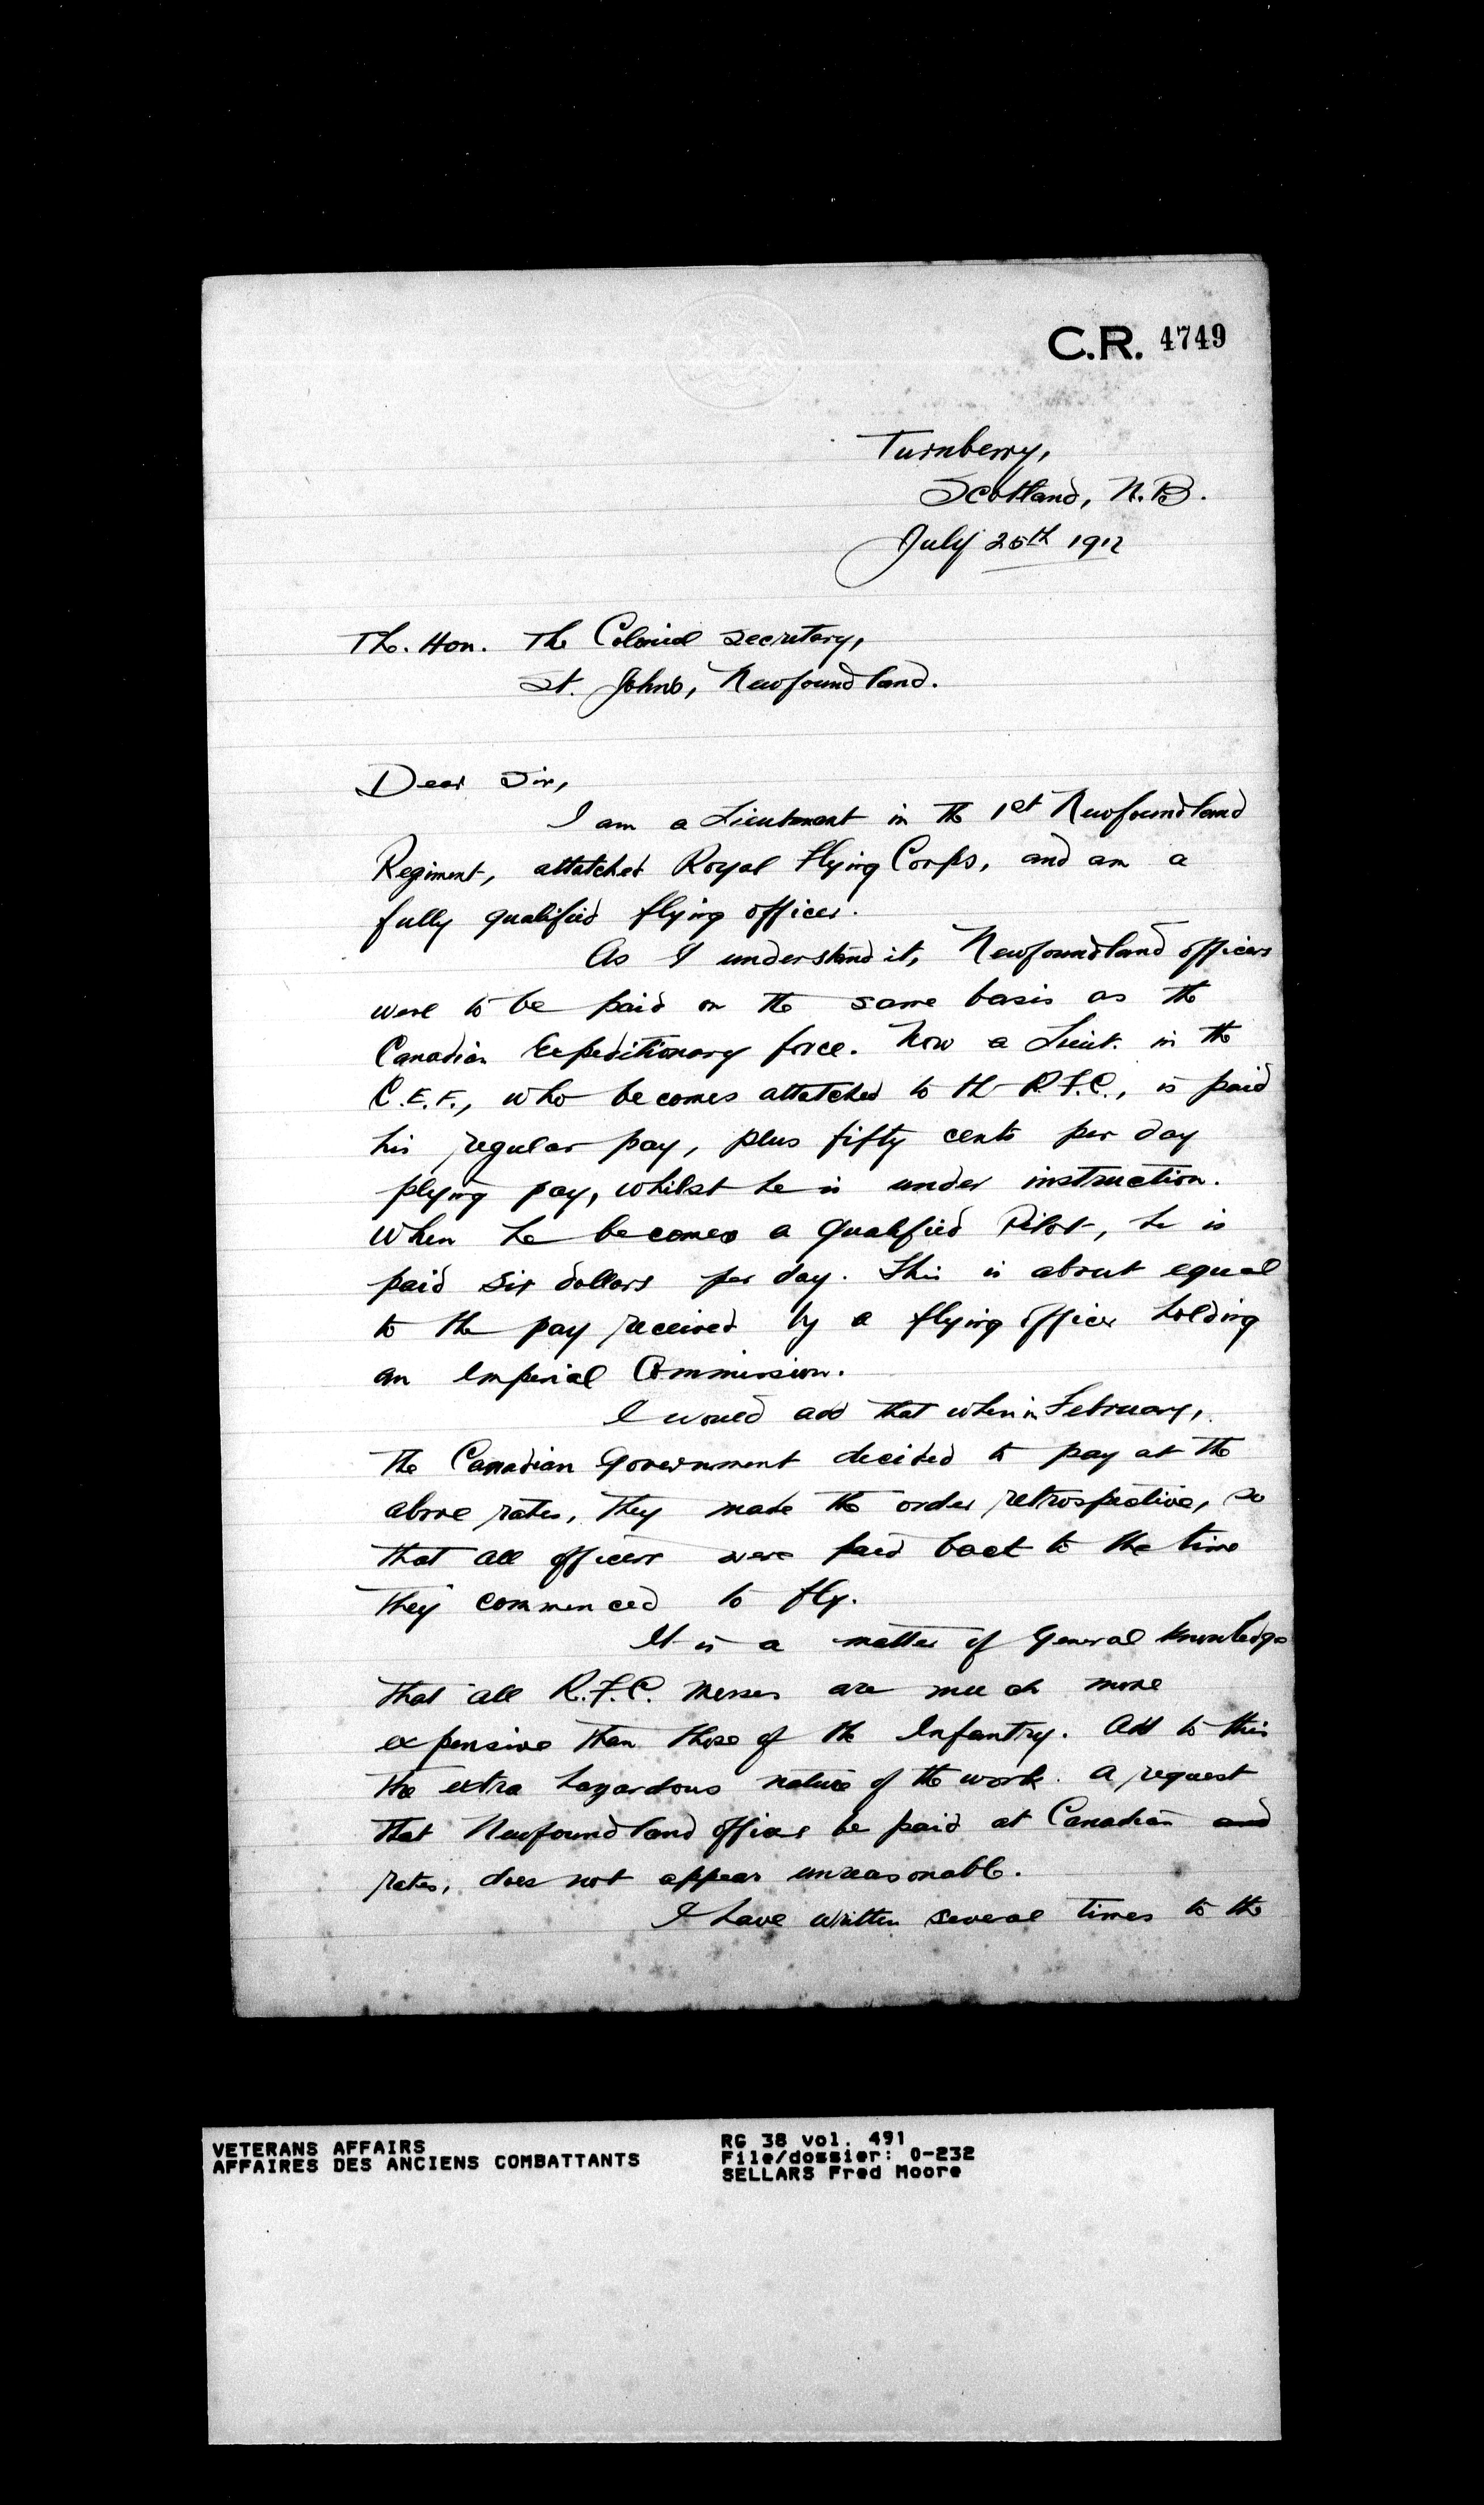 C.R. 4749
Turnberry,
Scotland, N.B.
July 25th 1917
Th. Hon. The Colonial Secretary,
St. John's, Newfoundland.
Dear Sir,
I am a Lieutenant in the 1st Newfoundland
Regiment, attatched Royal Flying Corps, and am a
fully qualified flying officer.
As I understand it, Newfoundland officers
were to be paid on the same basis as the
Canadian Expeditionary force. Now a Lieut. in the
C.E.F., who becomes attatched to the R.F.C., is paid
his regular pay, plus fifty cents per day
plying pay, whilst he is under instruction.
When he becomes a qualified Pilot, he is
paid six dollars per day. This is about equal
to the pay received by a flying officer holding
an Imperial Commission.
I would add that when in February,
the Canadian Government decided to pay at the
above rates, they made the order retrospective, so
that all officers were paid back to the time
they commenced to fly.
It is a matter of general knowledge
that all R.F.C. messes are much more
expensive than those of the Infantry. Add to this
the extra hazardous nature of the work. A request
that Newfoundland officers be paid at Canadian and
rates, does not appear unreasonable.
I have written several times to the
VETERANS AFFAIRS
AFFAIRES DES ANCIENS COMBATTANTS
RG 38 vol. 491
File/dossier: 0-232
SELLARS Fred Moore